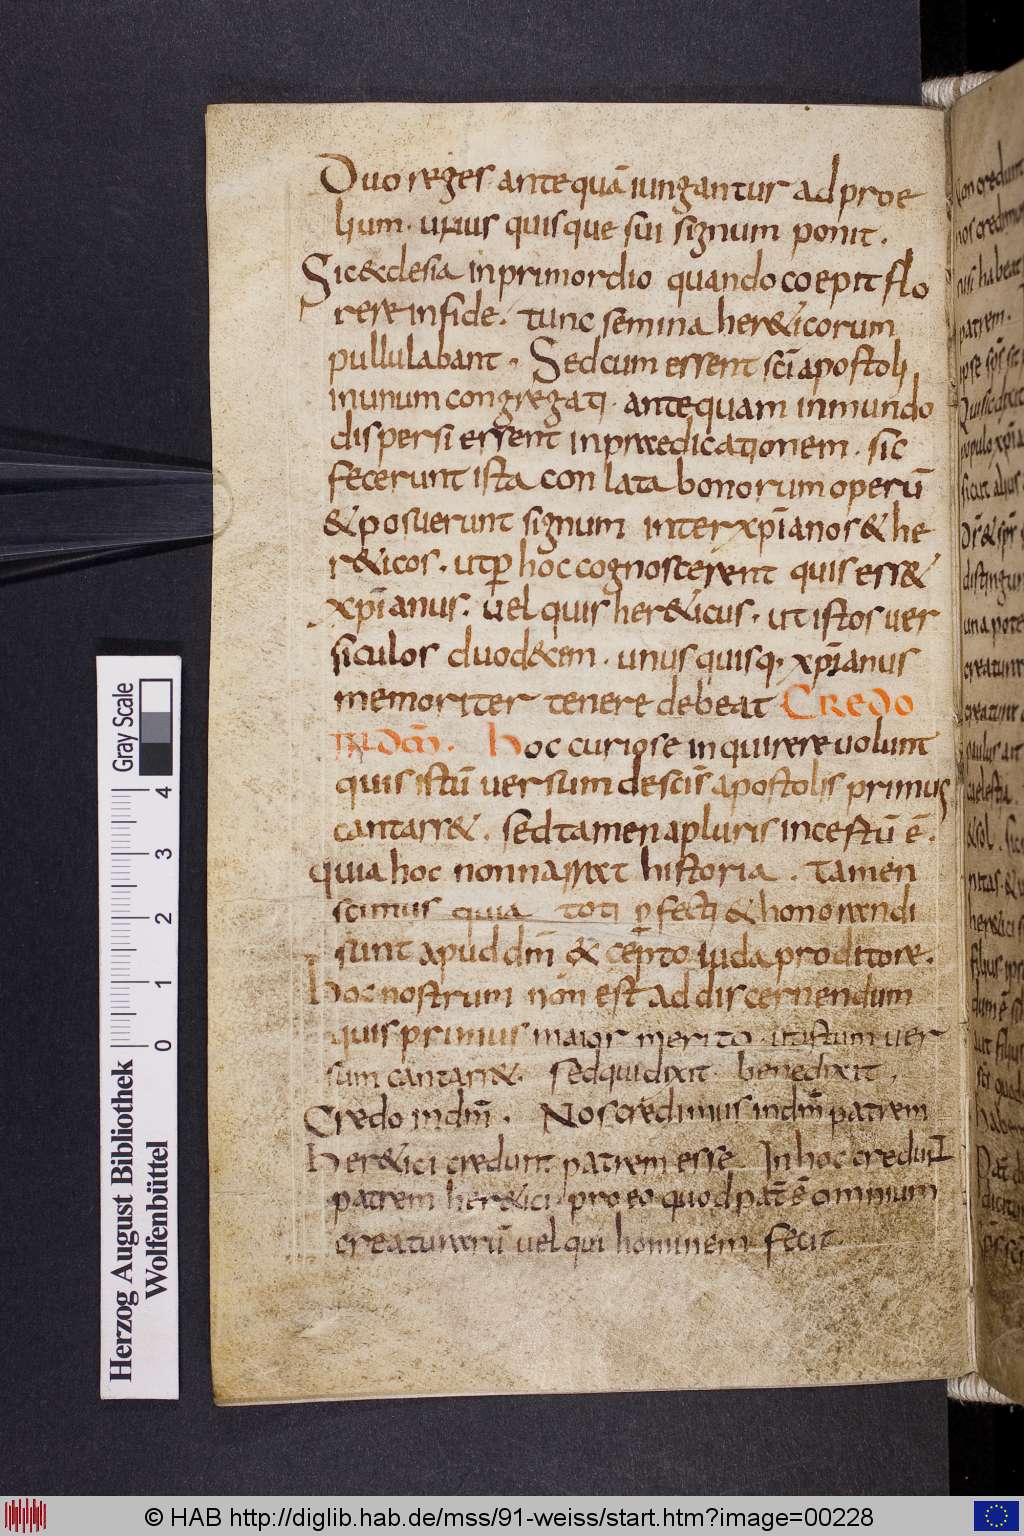 Duo reges antequā iungantur ad proe
lium. unus quisque sui signum ponit.
Sic & eclesia in primordio quando coepit flo
rere in fide. tunc semina her&icorum
pullulabant. Sed cum essent sc̄i apostoli
in unum congregati. antequam in mundo
dispersi essent in praedicationem. sic
fecerunt ista conlata bonorum operū
& posuerunt signum inter xp̄ianos & he
r&icos. ut p̄ hoc cognoscerent quis ess&
xp̄ianus. uel quis her&icus. ut istos uer
siculos duodecim. unus quisq; xp̄ianus
memoriter tenere debeat CREDO
IN DM̄. Hoc curiose inquirere uolunt
quis istū uersum de sc̄is apostolis primus
cantass&. sed tamen a pluris incestū ē.
quia hoc non narrat historia. Tamen
scimus quia toti p̄fecti & honorandi
sunt apud dm̄ & cep̄to iuda proditore.
Hoc nostrum non est ad discernendum
quis primus maior merito. ut istum uer
sum cantass&. sed qui dixit. benedixit.
Credo in dm̄. Nos credimus in dm̄ patrem
Her&ici credunt patrem esse In hoc credunt
patrem her&ici. pro eo quod pat̄ ē omnium
creaturarū uel qui hominem fecit
Gray Scale
0 1 2 3 4
Herzog August Bibliothek
Wolfenbüttel
© HAB http://diglib.hab.de/mss/91-weiss/start.htm?image=00228